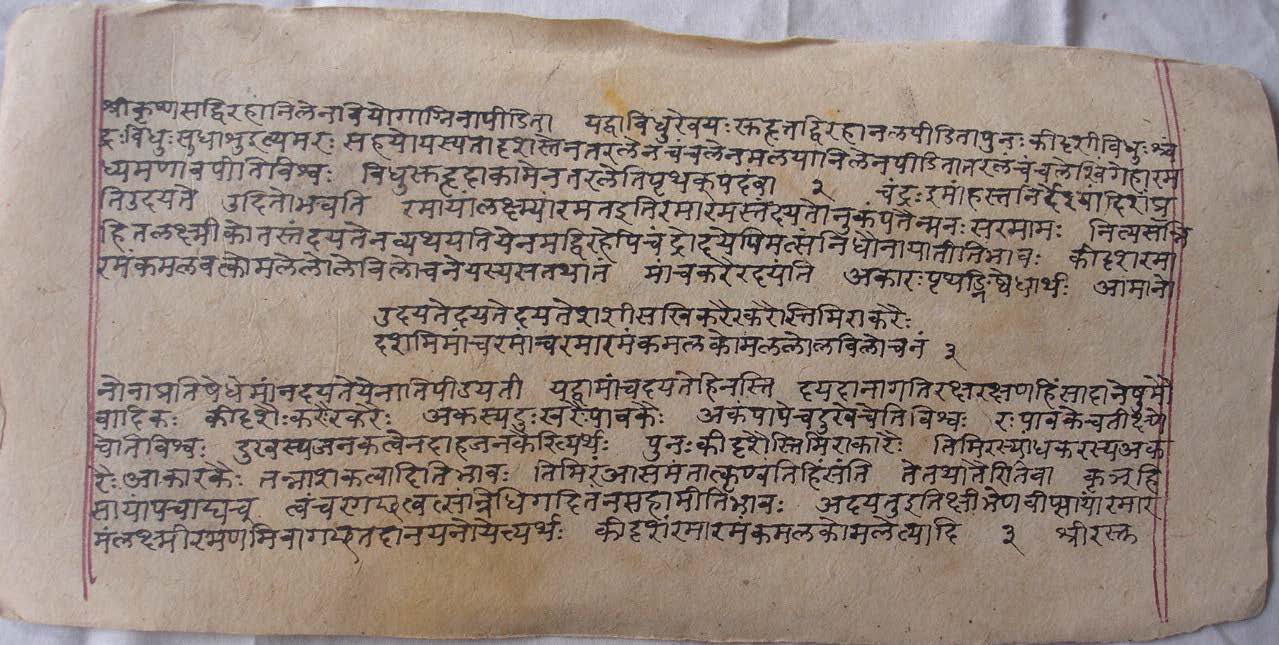 श्रीकृष्णसद्विरहानिलेनवियोगाग्निनापीडिता यद्वाविधुरेवयः स्तद्विरहानलपीडितापुनःकीदृशीविधुःश्चं
द्रःविधुःसुधाशुइत्यमरः सहयोयस्यतादृशस्तेनतरलेनचंचलेनमलयानिलेनपीडितातरलचंचले
ध्यमणावपीतिविश्वः विधुस्तद्हृदाकामेनतरलेतिपृथक्पदंवा २ चंद्रःइमांहस्तनिर्देश
तिउदयते उदितोभवति रमायांलक्ष्म्यांरमतइतिरमारमस्तंदयतेनुकंपतेन्मनःसरमामः नित्यसंनि
हितलक्ष्मीकोतस्तंदयतेनव्यथयतियेनमद्विरहेपिचंद्रोदयेपिमत्संनिधौनायातीतिभावः कीदृशंरमा
रमंकमलवत्कोमलेलोलेविलोचनेयस्यसतथातं मांचकरैरदयति अकारःपृथङ्निषेधार्थः आमानो
उदयतेदयतेदयतेशशीसखिकरैरकरैस्तिमिराकरैः
दशमिमांचरमांचरमारमंकमलकोमललोलविलोचनं ३
नोनाप्रतिषेधेमांनदयतेयेनातिपीडयती यद्वामांचदयतेहिनस्ति दयदानागतिरक्षणहिंसादानेषुभौ
वादिकः कीदृशैःकरैरकरैः अकस्यदुःखरैःपावकैः अकंपापेचदुःखेचेतिविश्वः रःपावकेचतीक्ष्णे
चेतिविश्वः दुःखस्यजनकत्वेनदाहजनकैरित्यर्थः पुनःकीदृशैस्तिमिराकारैः तिमिरस्याधकरस्यअक
रैःआकारकैः तन्नाशकत्वादितिभावः तिमिरंआसमंतात्कृण्वंतिहिंसंति तेतथातैरितिवा कृञ्हिं
सायांपचाद्यच् त्वंचरगच्छत्वत्सान्निधिगदितनसहामीतिभावः अदयतुइतिक्ष्मी वीप्सायांरमार
मंलक्ष्मीरमणमिवागच्छतदानयनोयेत्यर्थः कीदृशंरमारमंकमलकोमलेत्यादि ३ श्रीरस्तु